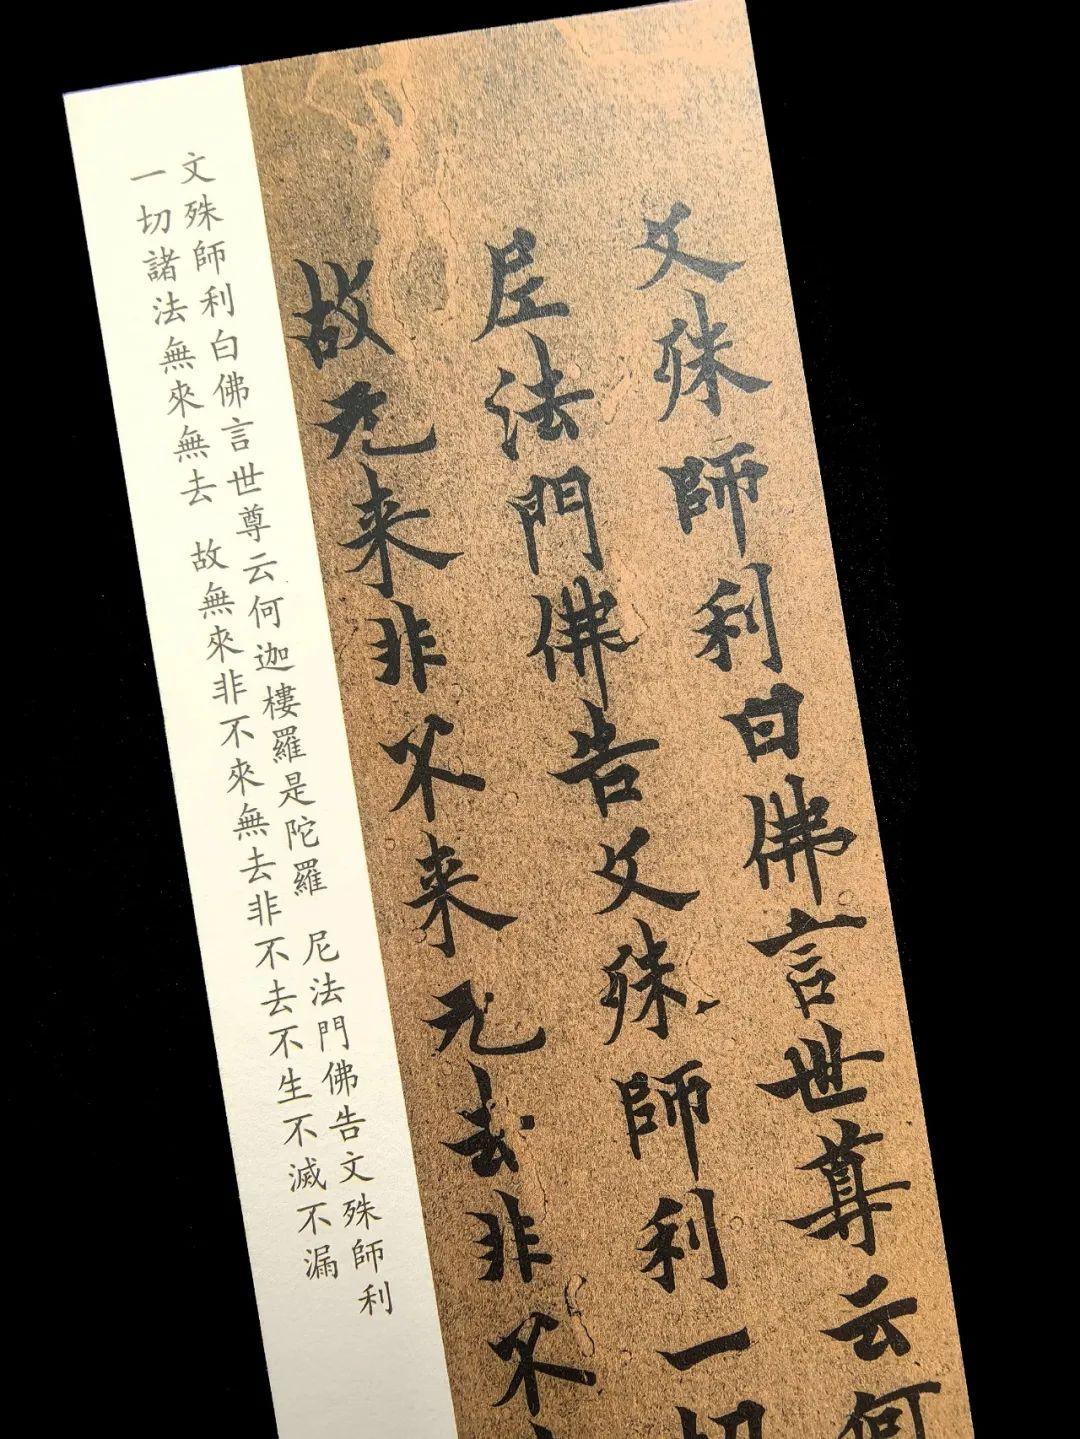 文殊師利白佛言世尊云何
尼法門佛告文殊師利一切
故无来非不来无去非不
文殊師利白佛言世尊云何迦樓羅是陀羅 尼法門佛告文殊師利
一切諸法無來無去 故無來非不來無去非不去不生不滅不漏